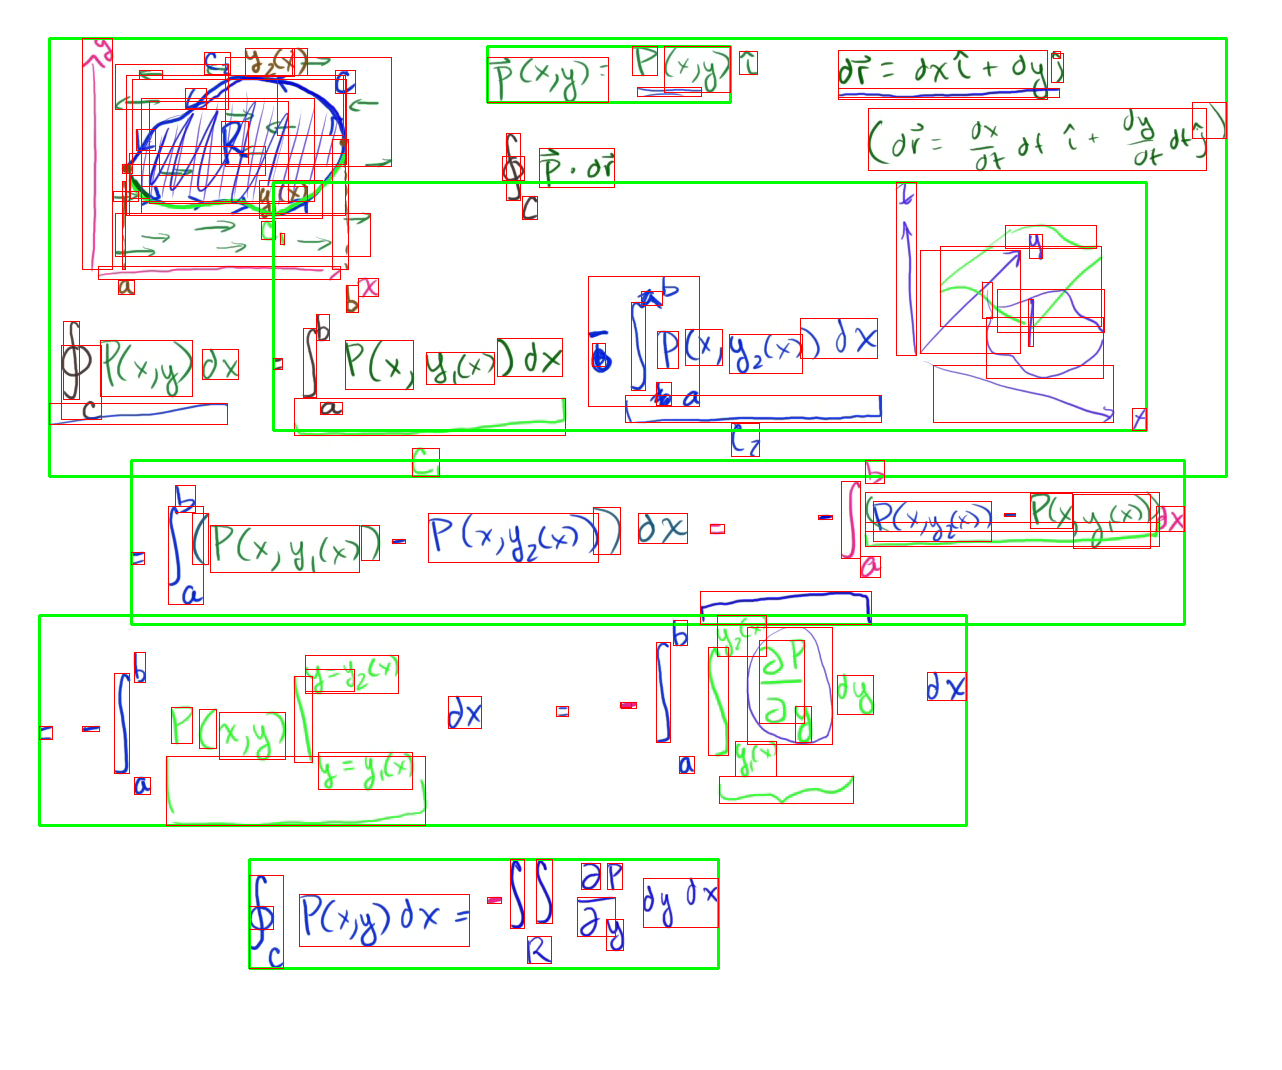 y C₁ y₂(x) C
R
y₁(x)
C₁
a b x
P⃗(x,y) = P(x,y) î
dr⃗ = dx î + dy ĵ
(dr⃗ = dx/dt dt î + dy/dt dt ĵ)
∮_C P⃗ · dr⃗
z y x
∮_C P(x,y) dx = ∫_a^b P(x, y₁(x)) dx − ∫_a^b P(x, y₂(x)) dx
C₁ C₂
= ∫_a^b (P(x, y₁(x)) − P(x, y₂(x))) dx = −∫_a^b (P(x, y₂(x)) − P(x, y₁(x))) dx
= − ∫_a^b P(x,y) |_{y = y₁(x)}^{y = y₂(x)} dx = − ∫_a^b ∫_{y₁(x)}^{y₂(x)} ∂P/∂y dy dx
∮_C P(x,y) dx = −∫∫_R ∂P/∂y dy dx